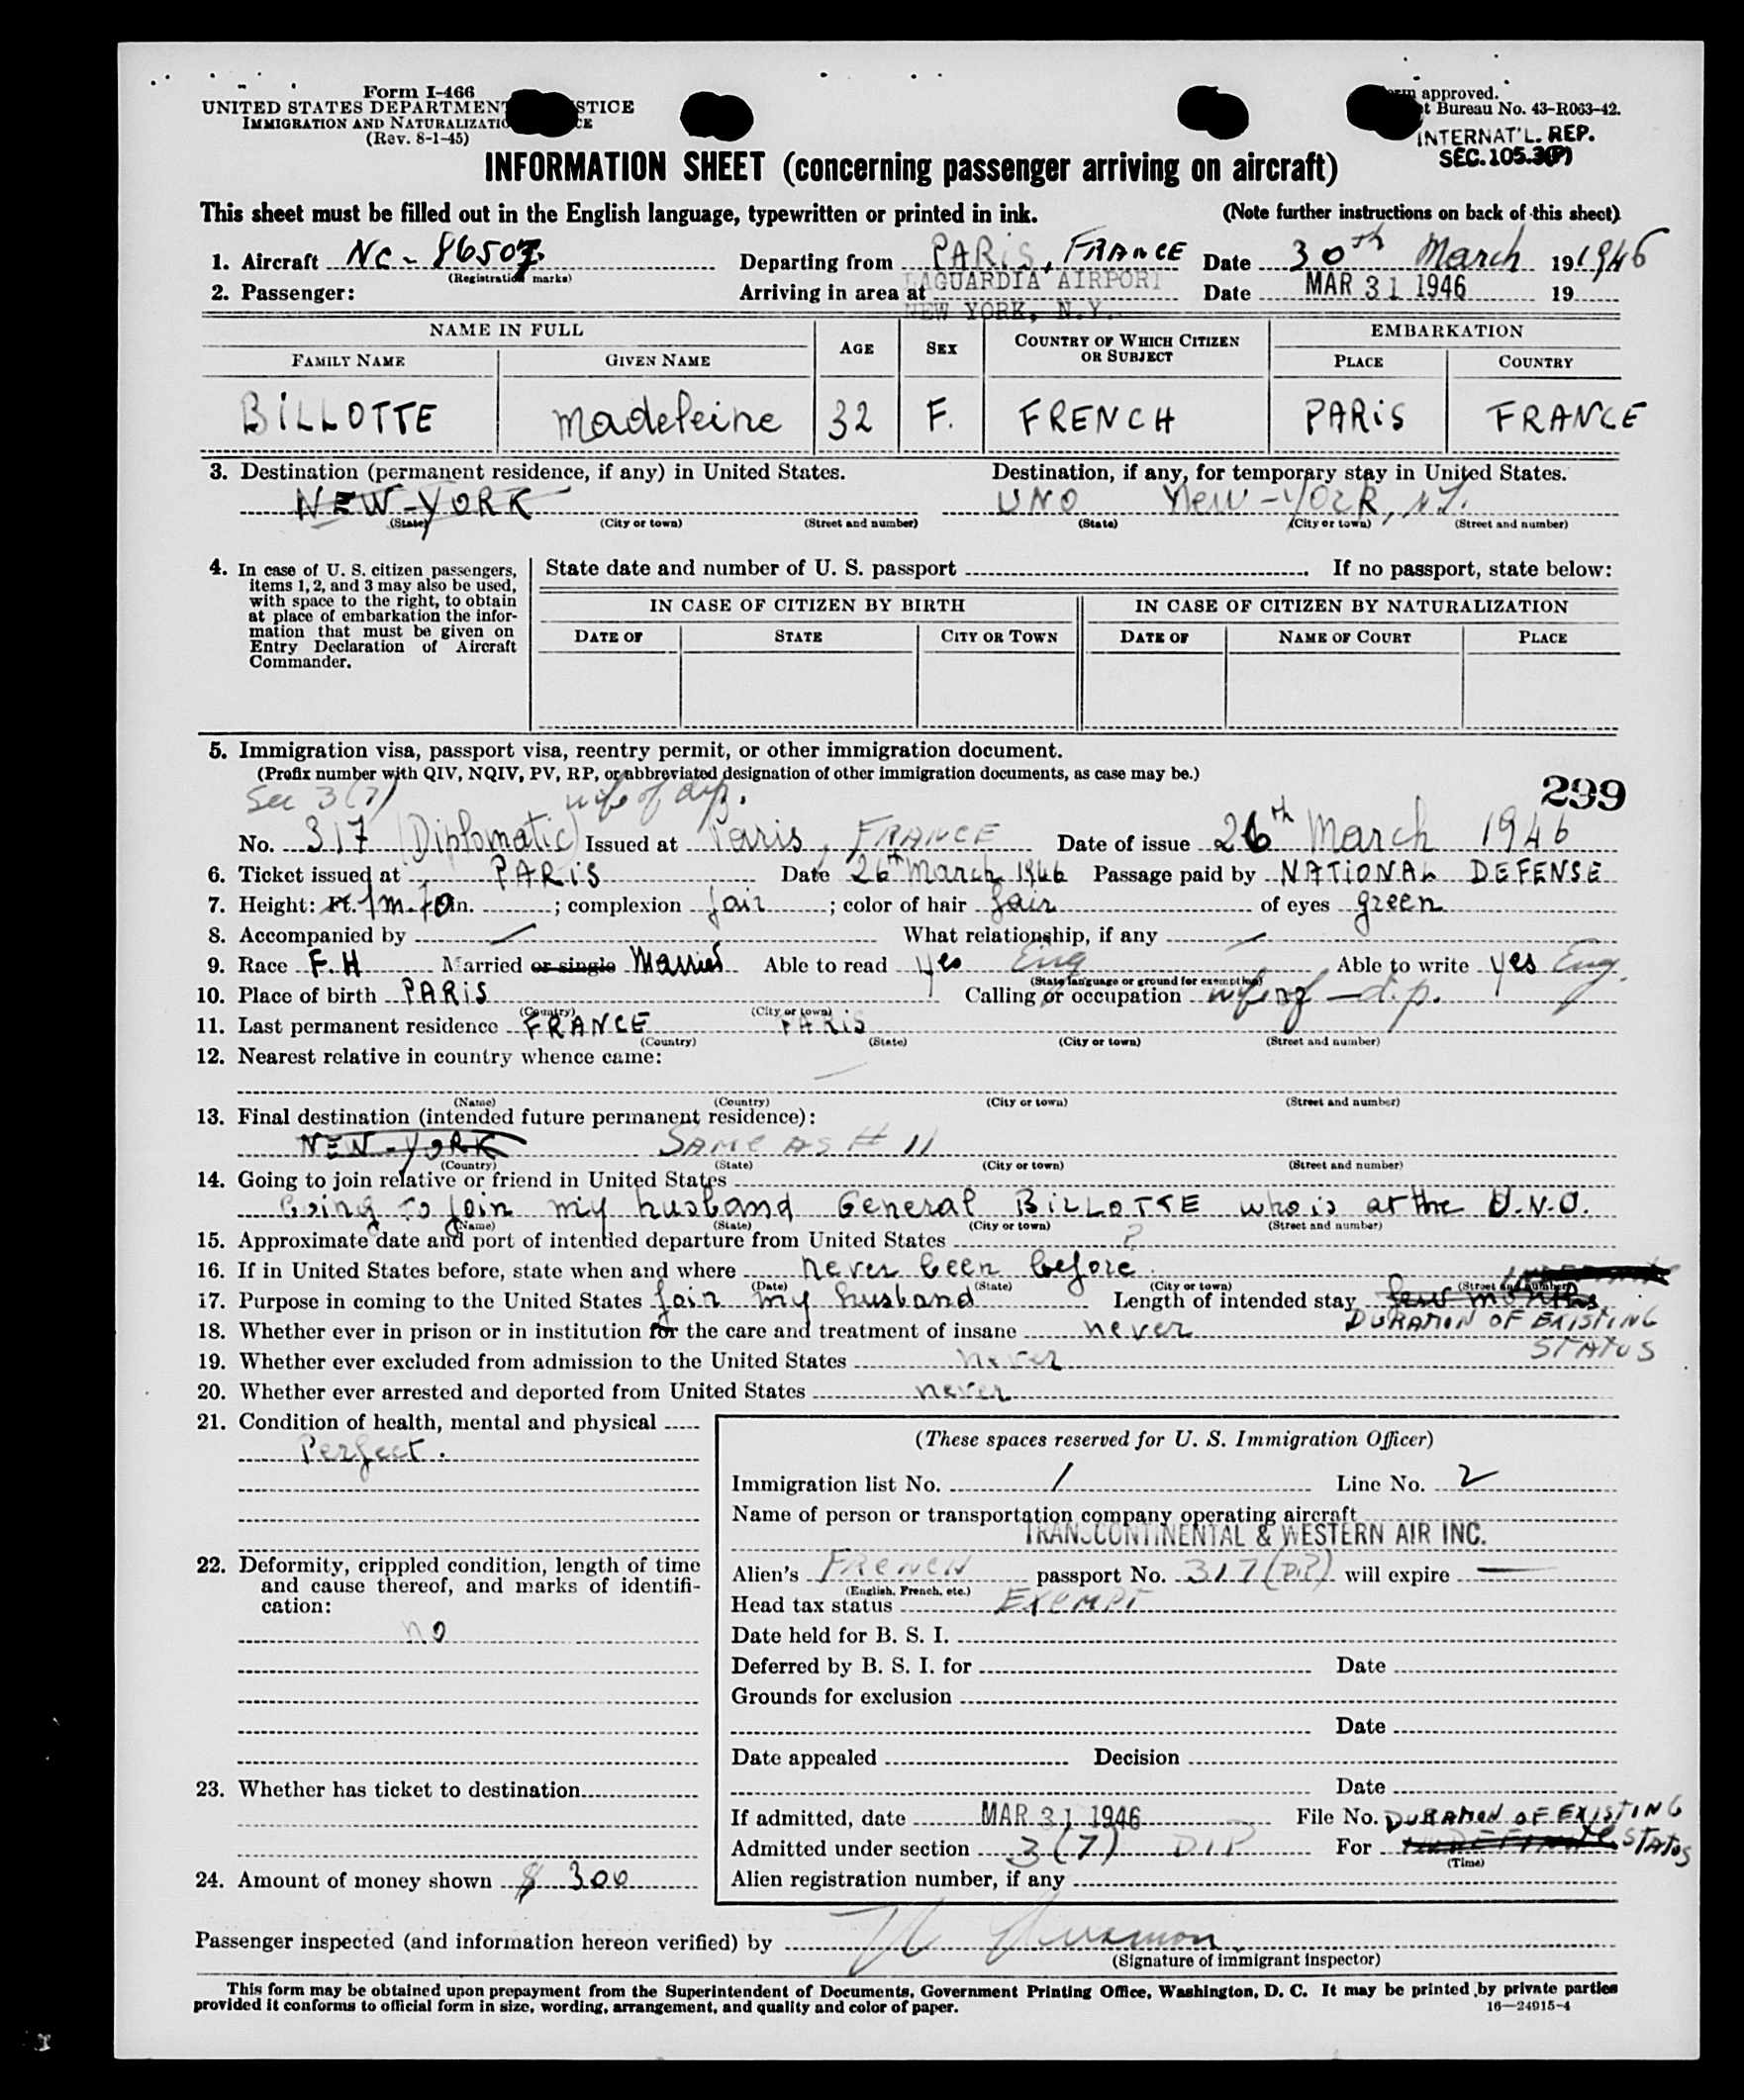 Form I-466
UNITED STATES DEPARTMENT STICE
IMMIGRATION AND NATURALIZATIO CE
(Rev. 8-1-45)
approved.
t Bureau No. 43-R063-42.
INTERNAT'L. REP.
SEC. 105.3(P)
INFORMATION SHEET (concerning passenger arriving on aircraft)
This sheet must be filled out in the English language, typewritten or printed in ink. (Note further instructions on back of this sheet)
1. Aircraft NC - 86507 Departing from PARIS, FRANCE Date 30th March 19 1946
(Registration marks)
2. Passenger: Arriving in area at LAGUARDIA AIRPORT Date MAR 31 1946 19
NEW YORK, N.Y.
NAME IN FULL AGE SEX COUNTRY OF WHICH CITIZEN OR SUBJECT EMBARKATION
FAMILY NAME GIVEN NAME PLACE COUNTRY
BILLOTTE Madeleine 32 F. FRENCH PARIS FRANCE
3. Destination (permanent residence, if any) in United States. Destination, if any, for temporary stay in United States.
NEW-YORK UNO New-York, N.Y.
(State) (City or town) (Street and number) (State) (City or town) (Street and number)
4. In case of U. S. citizen passengers, items 1, 2, and 3 may also be used, with space to the right, to obtain at place of embarkation the information that must be given on Entry Declaration of Aircraft Commander.
State date and number of U. S. passport . If no passport, state below:
IN CASE OF CITIZEN BY BIRTH IN CASE OF CITIZEN BY NATURALIZATION
DATE OF STATE CITY OR TOWN DATE OF NAME OF COURT PLACE
5. Immigration visa, passport visa, reentry permit, or other immigration document.
(Prefix number with QIV, NQIV, PV, RP, or abbreviated designation of other immigration documents, as case may be.)
299
Sec 3(7) wife of dip.
No. 317 (Diplomatic) Issued at Paris, FRANCE Date of issue 26th March 1946
6. Ticket issued at PARIS Date 26th March 1946 Passage paid by NATIONAL DEFENSE
7. Height: Ft. 1m.70 in. ; complexion fair ; color of hair fair of eyes green
8. Accompanied by — What relationship, if any —
9. Race F.H Married or single Married Able to read yes Eng Able to write yes Eng.
(State language or ground for exemption)
10. Place of birth PARIS Calling or occupation wife of dip.
(Country) (City or town)
11. Last permanent residence FRANCE PARIS
(Country) (State) (City or town) (Street and number)
12. Nearest relative in country whence came:
—
(Name) (Country) (City or town) (Street and number)
13. Final destination (intended future permanent residence):
NEW-YORK SAME AS # 11
(Country) (State) (City or town) (Street and number)
14. Going to join relative or friend in United States
Going to join my husband General BILLOTTE who is at the U.N.O.
(Name) (State) (City or town) (Street and number)
15. Approximate date and port of intended departure from United States ?
16. If in United States before, state when and where never been before
(Date) (State) (City or town) (Street and number)
17. Purpose in coming to the United States join my husband Length of intended stay few months
DURATION OF EXISTING
STATUS
18. Whether ever in prison or in institution for the care and treatment of insane never
19. Whether ever excluded from admission to the United States never
20. Whether ever arrested and deported from United States never
21. Condition of health, mental and physical
Perfect.
22. Deformity, crippled condition, length of time and cause thereof, and marks of identification:
no
23. Whether has ticket to destination
24. Amount of money shown $ 300
(These spaces reserved for U. S. Immigration Officer)
Immigration list No. 1 Line No. 2
Name of person or transportation company operating aircraft
TRANSCONTINENTAL & WESTERN AIR INC.
Alien's FRENCH passport No. 317 (DIP) will expire —
(English, French, etc.)
Head tax status EXEMPT
Date held for B. S. I.
Deferred by B. S. I. for Date
Grounds for exclusion
Date
Date appealed Decision
Date
If admitted, date MAR 31 1946 File No. DURATION OF EXISTING
Admitted under section 3(7) DIP For INDEFINITE STATUS
(Time)
Alien registration number, if any
Passenger inspected (and information hereon verified) by
(Signature of immigrant inspector)
This form may be obtained upon prepayment from the Superintendent of Documents, Government Printing Office, Washington, D. C. It may be printed by private parties
provided it conforms to official form in size, wording, arrangement, and quality and color of paper. 16—24915-4